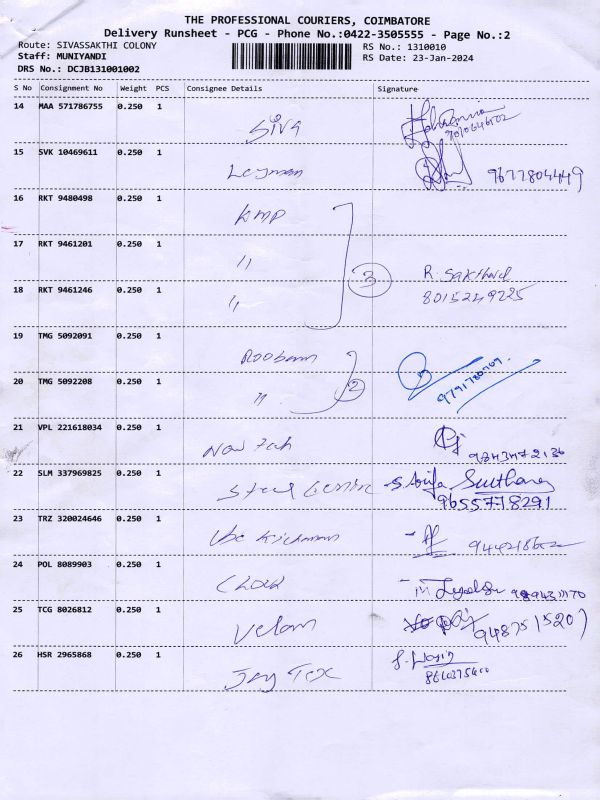 THE PROFESSIONAL COURIERS, COIMBATORE
Delivery Runsheet - PCG - Phone No.:0422-3505555 - Page No.:2
Route: SIVASSAKTHI COLONY RS No.: 1310010
Staff: MUNIYANDI RS Date: 23-Jan-2024
DRS No.: DCJB131001002
S No Consignment No Weight PCS Consignee Details Signature
14 MAA 571786755 0.250 1 Siva
15 SVK 10469611 0.250 1 9677804449
16 RKT 9480498 0.250 1 KMP
17 RKT 9461201 0.250 1 〃 3 R. Sakthivel
18 RKT 9461246 0.250 1 〃 8015249225
19 TMG 5092091 0.250 1 Rooban
20 TMG 5092208 0.250 1 〃 2 9791780769.
21 VPL 221618034 0.250 1 9843472136
22 SLM 337969825 0.250 1 9655778291
23 TRZ 320024646 0.250 1
24 POL 8089903 0.250 1
25 TCG 8026812 0.250 1 Velan
26 HSR 2965868 0.250 1 Jay Tex